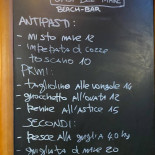 BEACH-BAR
ANTIPASTI:
- misto mare 12
- impepata di cozze
toscano 10
PRIMI:
- tagliolino alle vongole 14
- gnocchetto all'aurata 12
- penne all'astice 15
SECONDI:
- pesce alla griglia 4,0 hg
- grigliata di mare 20